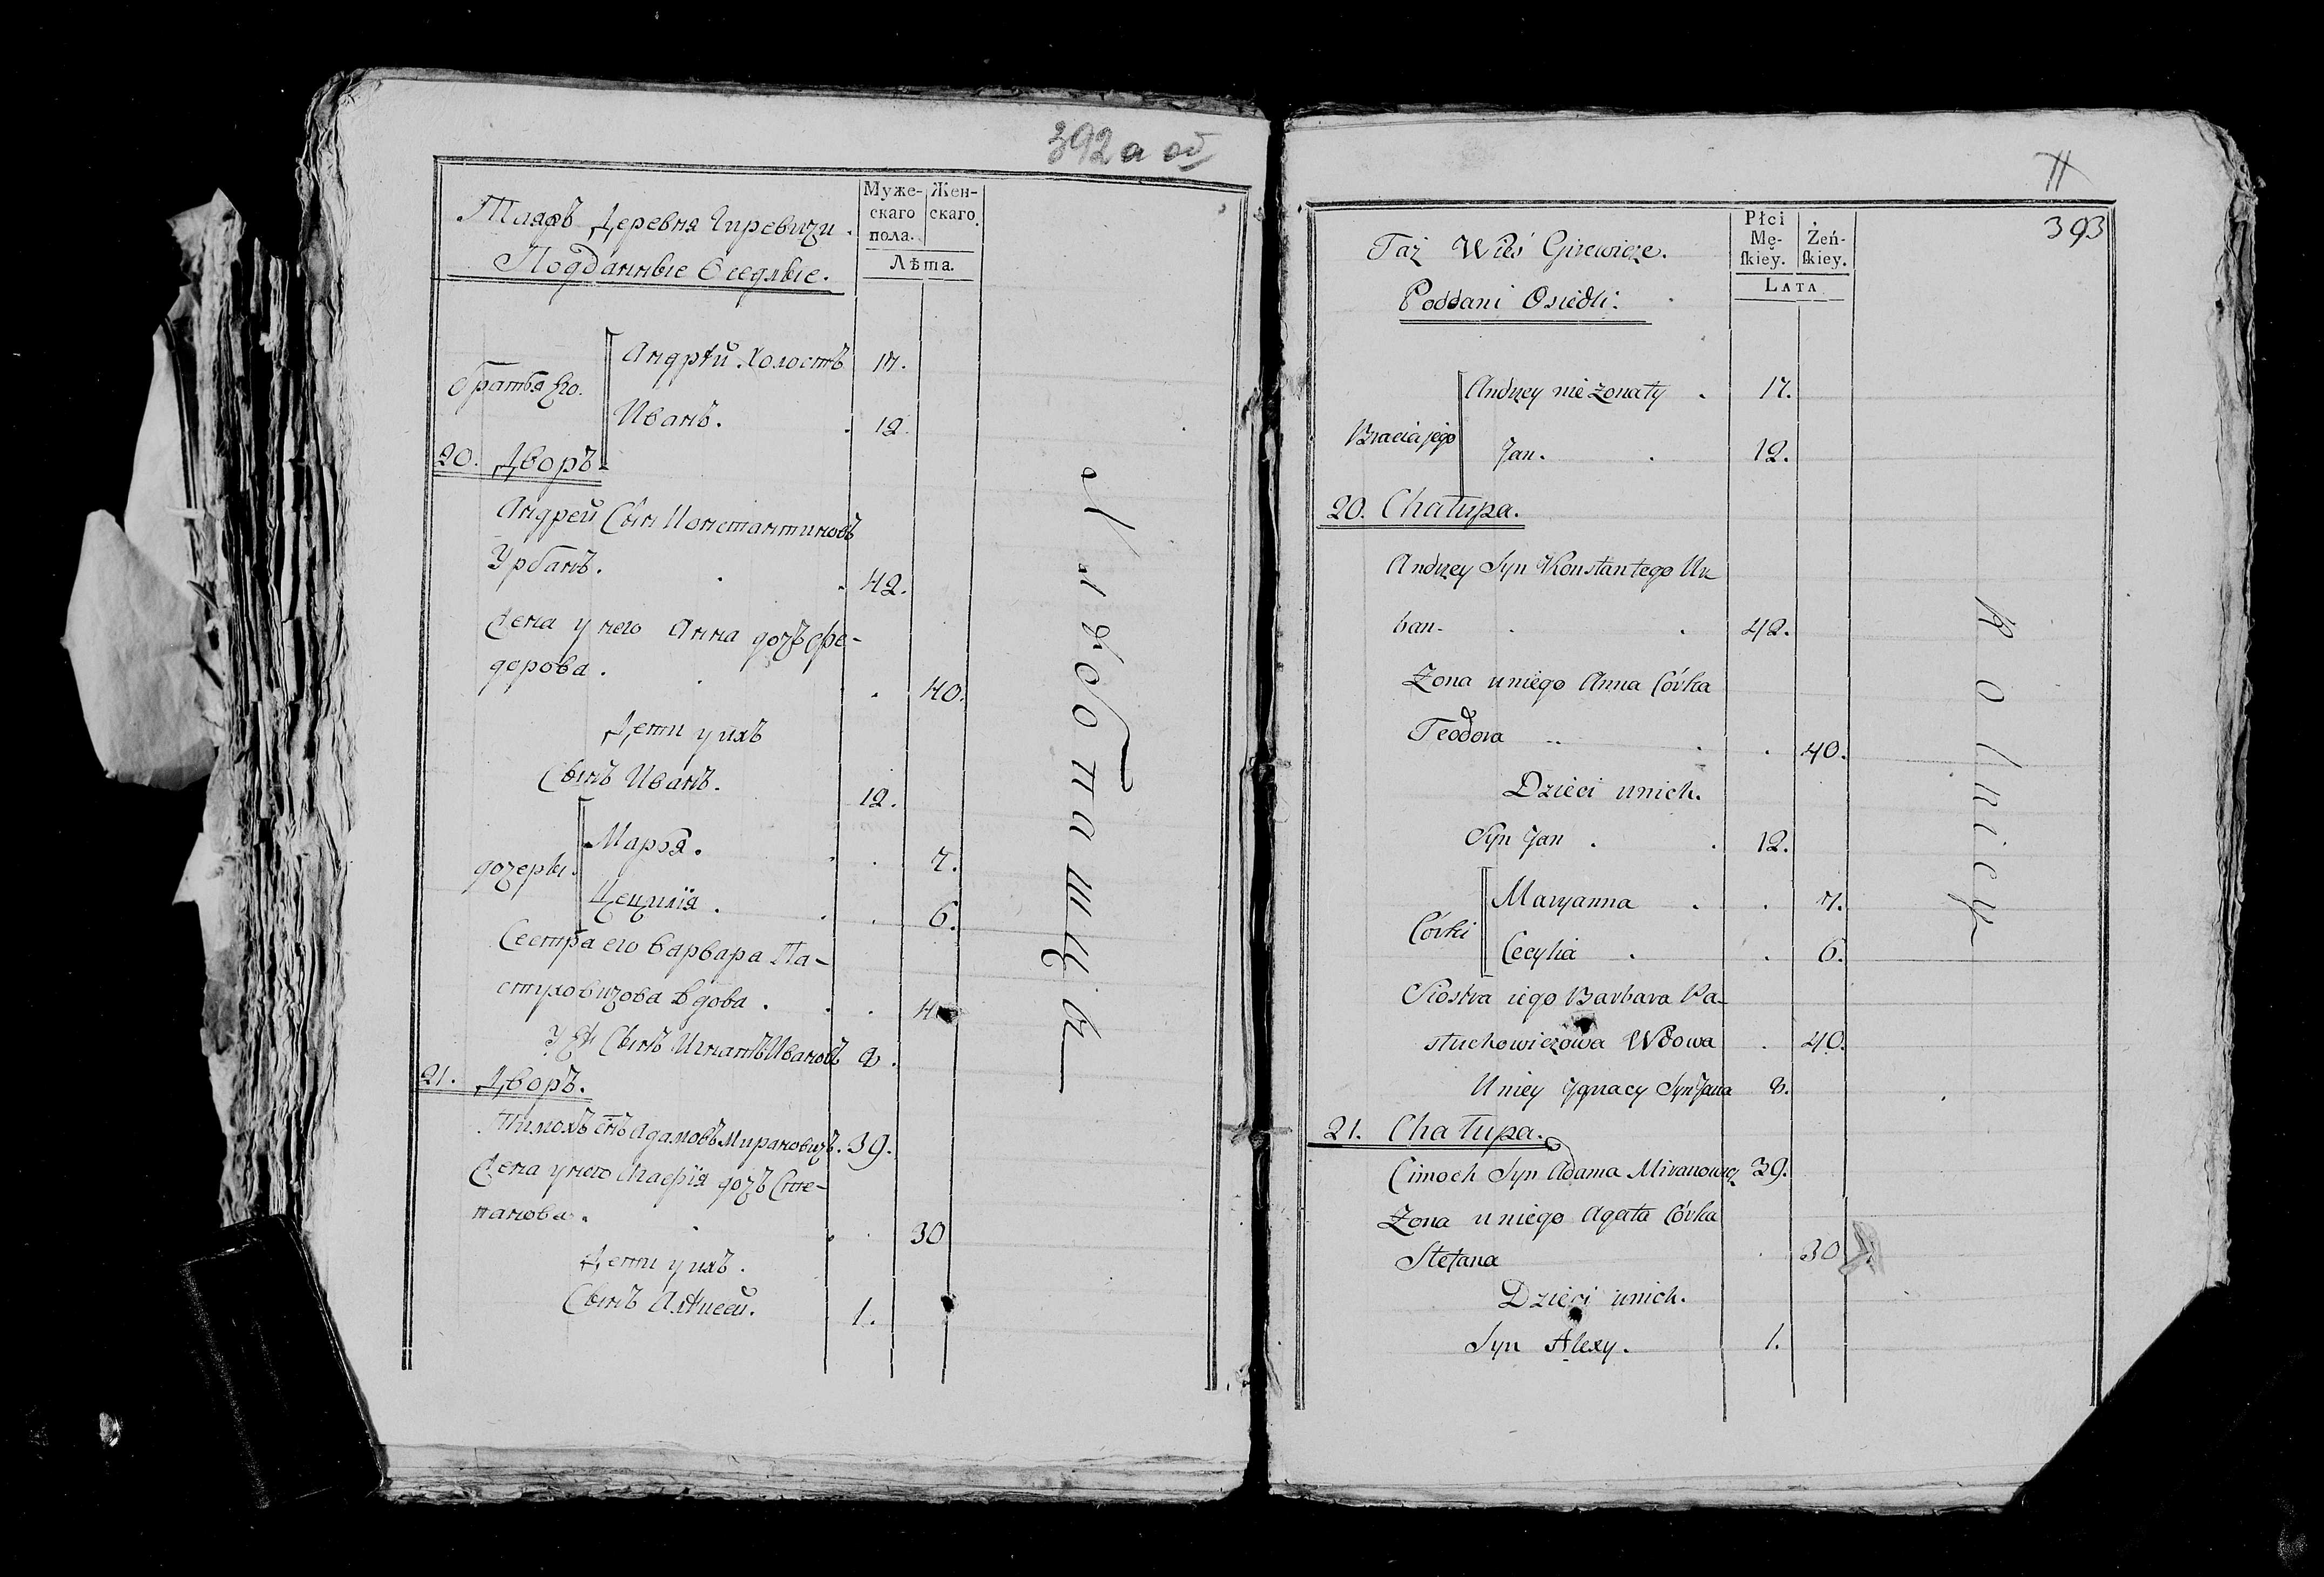 392а об
Таяжъ Деревня Гиревичи.
Подданные Оседлые.
Муже-
скаго
пола.
Жен-
скаго
Лѣта.
Андрѣй Холостъ 17.
братья Его.
Иванъ. 12.
20. Дворъ
Андрей Сын Константиновъ
Урбанъ. 42.
Жена у него Анна дочь Фе-
дорова. 40.
Дети у нихъ
Сынъ Иванъ. 12.
Марья. 7.
дочери
Цецилія. 6.
Сестра его Варвара Па-
стуховичова Вдова.
У ей Сынъ Игнатъ Ивановъ 8.
21. Дворъ.
Тимохъ снъ Адамовъ Мирановичъ. 39.
Жена у него Агафія дочь Сте-
панова. 30
Дети у нихъ.
Сынъ Алѣксей. 1.
Хлѣбопашцы
11
393
Taż Wieś Girewicze.
Poddani Osiedli.
Płci
Mę-
ſkiey.
Żeń-
ſkiey.
LATA
Andrzey nie żonaty 17.
Bracia jego
Jan. 12.
20. Chałupa.
Andrzey Syn Konstantego Ur
ban 42.
Żona u niego Anna Córka
Teodora 40.
Dzieci unich.
Syn Jan 12.
Maryanna 7.
Córki
Cecylia 6.
Siostra iego Barbara Pa-
stuchowiczowa Wdowa 40.
Uniey Ignacy Syn Jana 8.
21. Chałupa.
Cimoch Syn Adama Miranowicz 39.
Żona u niego Agata Córka
Stefana 30
Dzieci unich.
Syn Alexy. 1.
Rolnicy